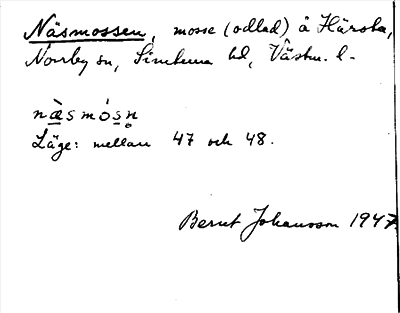 Näsmossen, mosse (odlad) å Härsta,
Norrby sn, Simtuna hd, Västm. l.
næ̀smósn̥
Läge: mellan 47 och 48.
Bernt Johansson 1947.